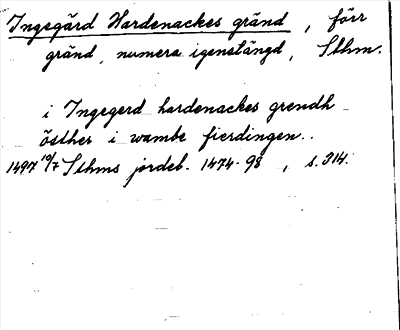 Ingegärd Hardenackes gränd, förr
gränd, numera igenstängd, Sthm.
i Ingegerd hardenackes grendh
östher i wambe fierdingen..
1497 10/7 Sthms jordeb. 1474-98, s. 314.